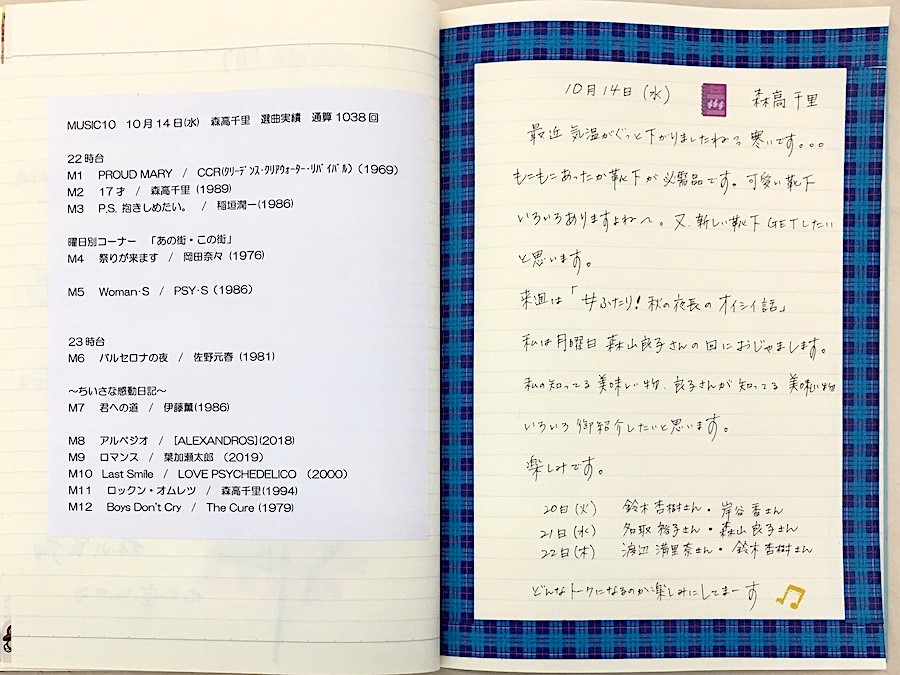 MUSIC10 10月14日(水) 森高千里 選曲実績 通算1038回
22時台
M1 PROUD MARY / CCR(クリーデンス・クリアウォーター・リバイバル) (1969)
M2 17才 / 森高千里 (1989)
M3 P.S. 抱きしめたい。 / 稲垣潤一(1986)
曜日別コーナー 「あの街・この街」
M4 祭りが来ます / 岡田奈々 (1976)
M5 Woman・S / PSY・S (1986)
23時台
M6 バルセロナの夜 / 佐野元春 (1981)
～ちいさな感動日記～
M7 君への道 / 伊藤薫(1986)
M8 アルペジオ / [ALEXANDROS](2018)
M9 ロマンス / 葉加瀬太郎 (2019)
M10 Last Smile / LOVE PSYCHEDELICO (2000)
M11 ロックン・オムレツ / 森高千里(1994)
M12 Boys Don't Cry / The Cure (1979)
10月14日(水) 森高千里
最近 気温がぐっと下がりましたねっ 寒いです。。。
もこもこあったか靴下が必需品です。可愛い靴下
いろいろありますよね〜。又、新しい靴下GETしたい
と思います。
来週は「女ふたり!秋の夜長のオイシイ話」
私は月曜日 森山良子さんの回におじゃまします。
私の知ってる美味しい物、良子さんが知ってる 美味しい物
いろいろ御紹介したいと思います。
楽しみです。
20日(火) 鈴木杏樹さん・岸谷香さん
21日(水) 名取裕子さん・森山良子さん
22日(木) 渡辺満里奈さん・鈴木杏樹さん
どんなトークになるのか楽しみにしてまーす